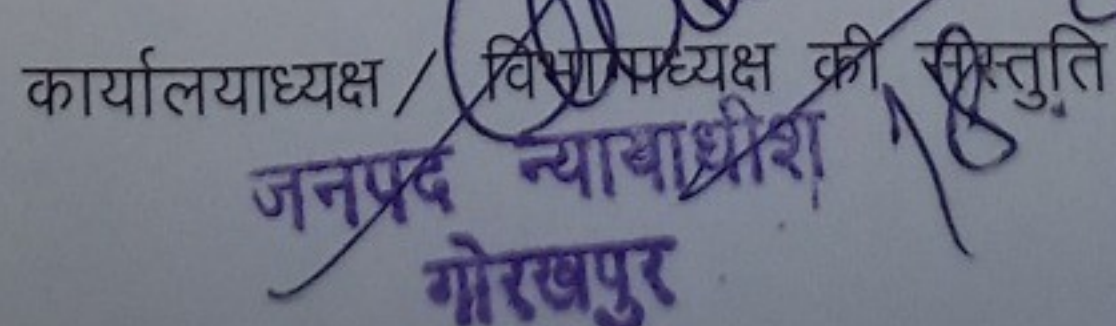 कार्यालयाध्यक्ष / विभागाध्यक्ष की संस्तुति
जनपद न्यायाधीश
गोरखपुर